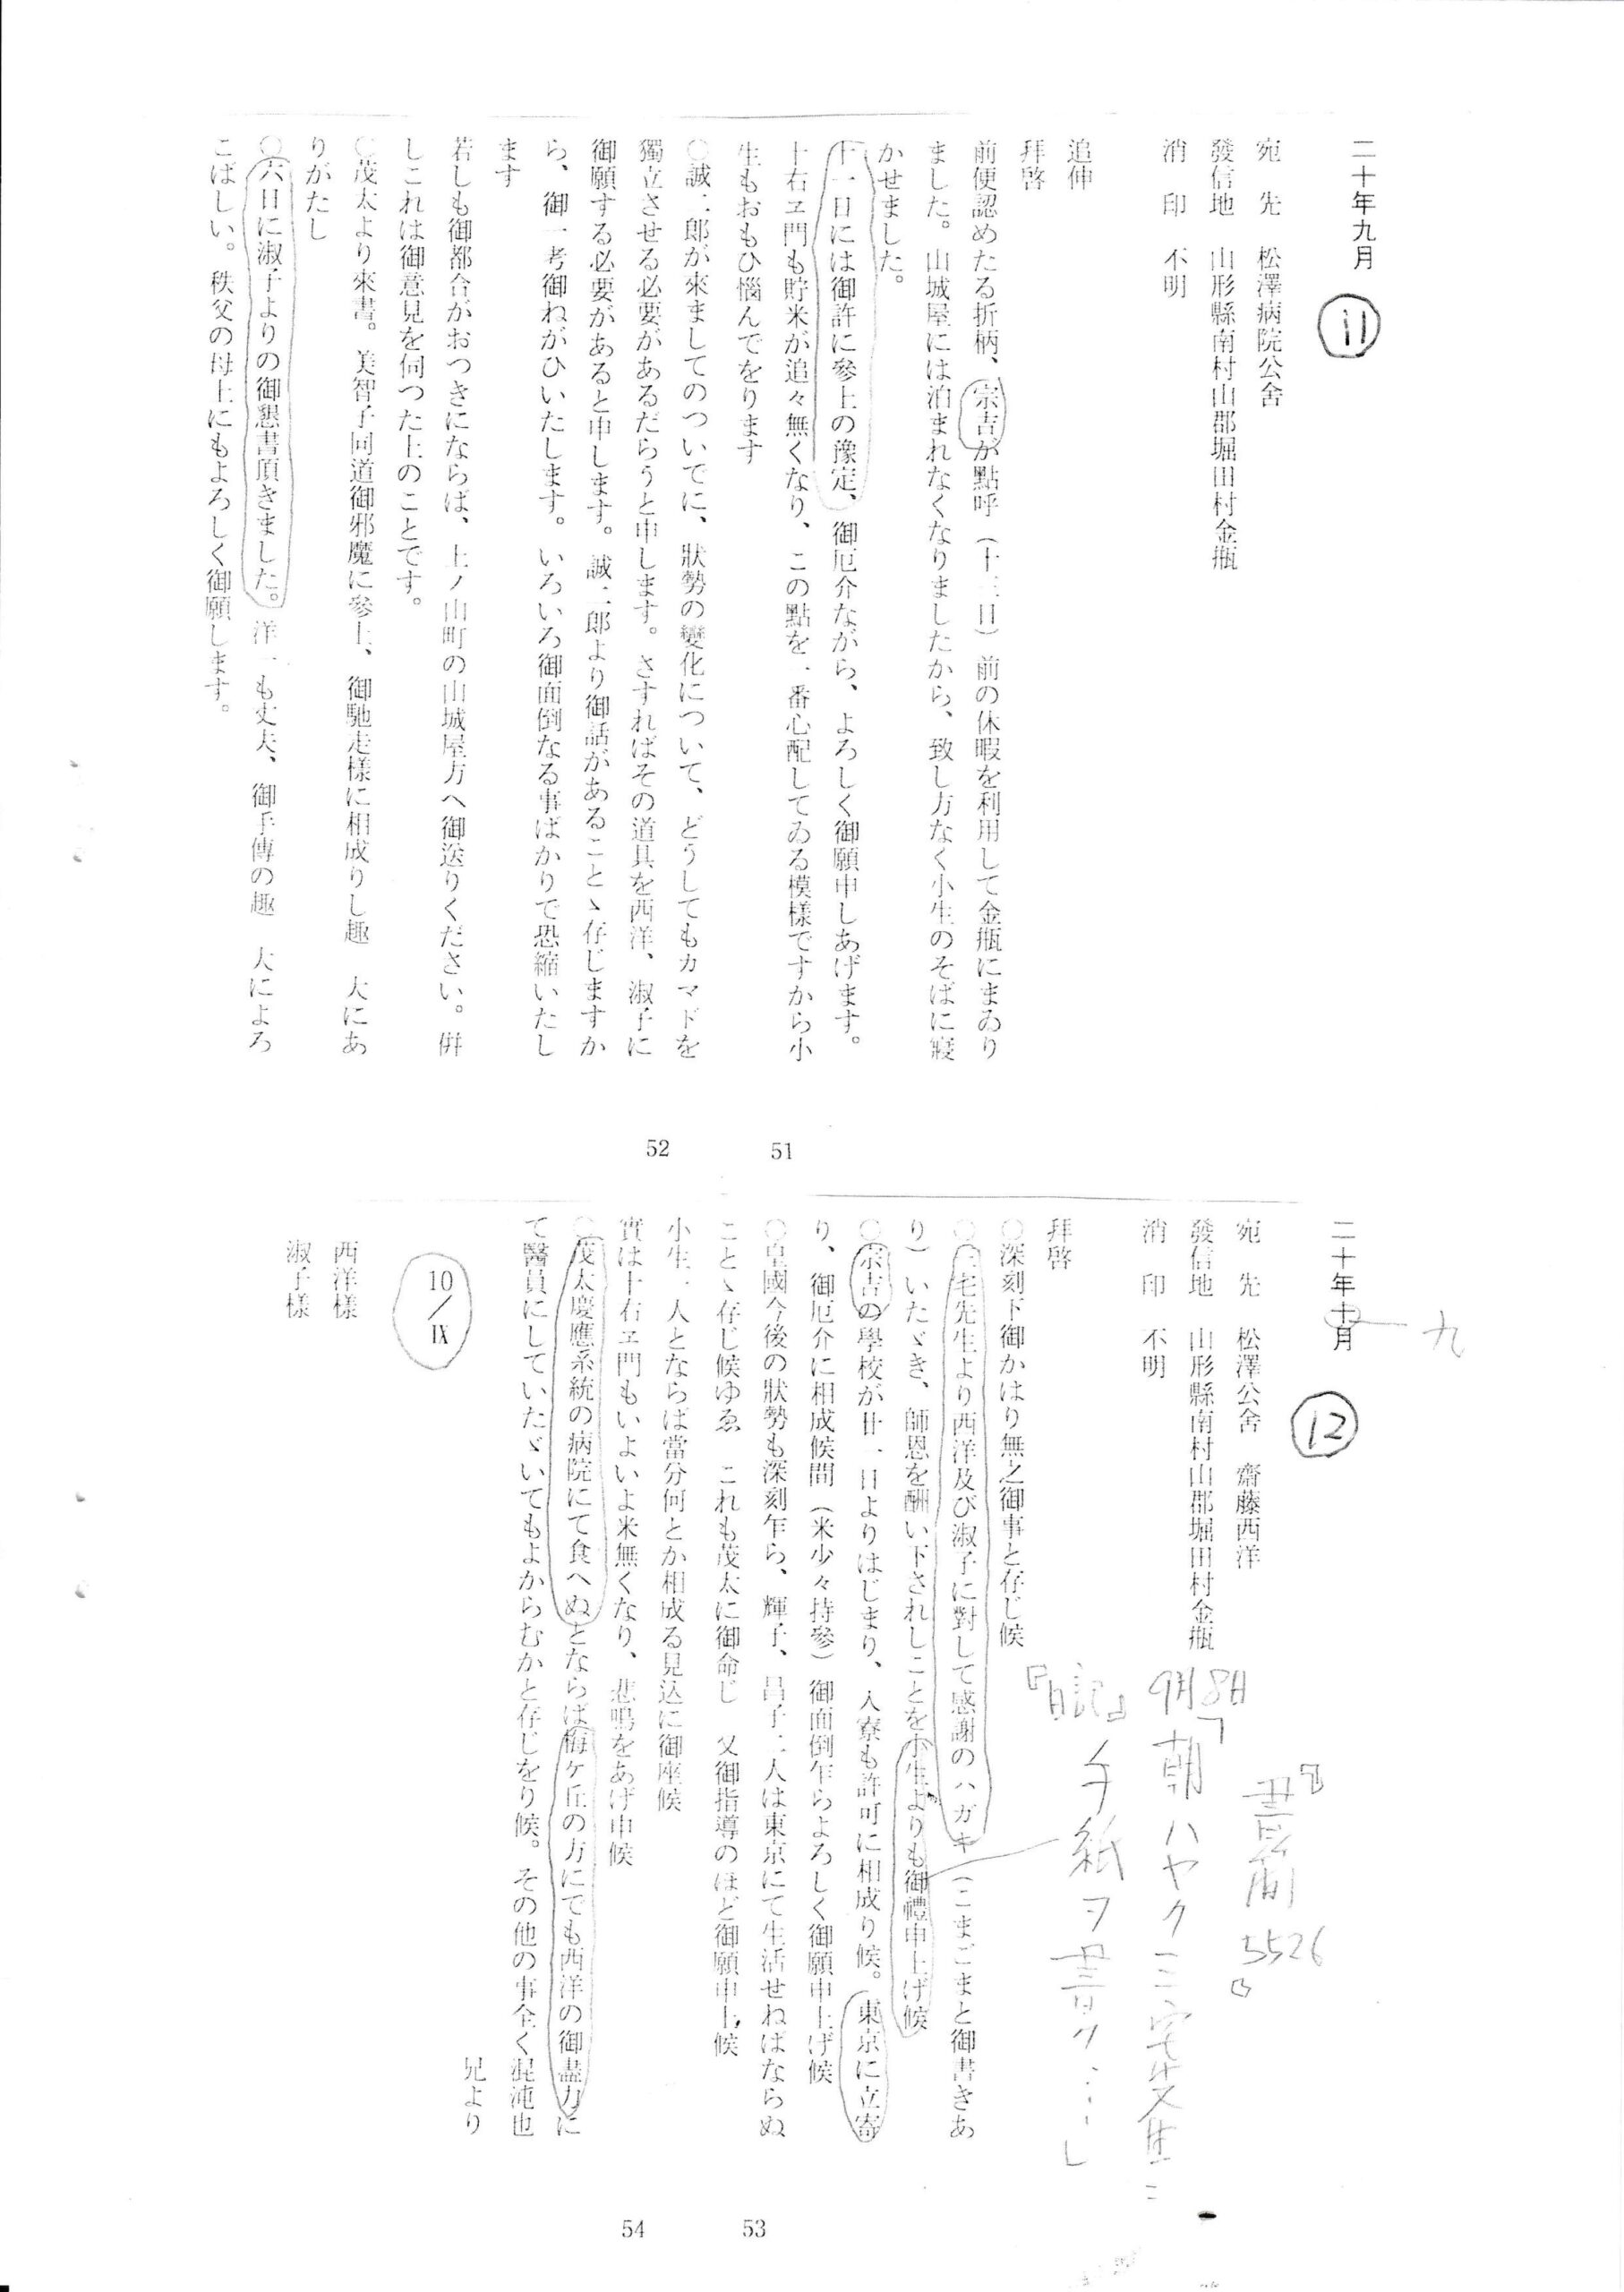 二十年九月
11
宛　先　松澤病院公舍
發信地　山形縣南村山郡堀田村金瓶
消　印　不明
追伸
拜啓
前便認めたる折柄、宗吉が點呼（十三日）前の休暇を利用して金瓶にまゐり
ました。山城屋には泊まれなくなりましたから、致し方なく小生のそばに寢
かせました。
十一日には御許に參上の豫定、御厄介ながら、よろしく御願申しあげます。
十右ヱ門も貯米が追々無くなり、この點を一番心配してゐる模樣ですから小
生もおもひ惱んでをります
○誠二郎が來ましてのついでに、狀勢の變化について、どうしてもカマドを
獨立させる必要があるだらうと申します。さすればその道具を西洋、淑子に
御願する必要があると申します。誠二郎より御話があることゝ存じますか
ら、御一考御ねがひいたします。いろいろ御面倒なる事ばかりで恐縮いたし
ます
若しも御都合がおつきにならば、上ノ山町の山城屋方へ御送りください。併
しこれは御意見を伺つた上のことです。
○茂太より來書。美智子同道御邪魔に參上、御馳走樣に相成りし趣　大にあ
りがたし
○六日に淑子よりの御懇書頂きました。洋一も丈夫、御手傳の趣　大によろ
こばしい。秩父の母上にもよろしく御願します。
51
52
二十年十月
九
12
宛　先　松澤公舍　齋藤西洋
發信地　山形縣南村山郡堀田村金瓶
消　印　不明
『書簡 5526』
『日記』9月8日
「朝ハヤク三宅先生ニ
手紙ヲ書ク……」
拜啓
○深刻下御かはり無之御事と存じ候
○三宅先生より西洋及び淑子に對して感謝のハガキ（こまごまと御書きあ
り）いたゞき、師恩を酬い下されしことを小生よりも御禮申上げ候
○宗吉の學校が廿一日よりはじまり、入寮も許可に相成り候。東京に立寄
り、御厄介に相成候間（米少々持參）御面倒乍らよろしく御願申上げ候
○皇國今後の狀勢も深刻乍ら、輝子、昌子二人は東京にて生活せねばならぬ
ことゝ存じ候ゆゑ　これも茂太に御命じ　父御指導のほど御願申上候
小生一人とならば當分何とか相成る見込に御座候
實は十右ヱ門もいよいよ米無くなり、悲鳴をあげ申候
○茂太慶應系統の病院にて食へぬとならば梅ケ丘の方にでも西洋の御盡力に
て醫員にしていたゞいてもよからむかと存じをり候。その他の事全く混沌也
兄より
10/Ⅸ
西洋樣
淑子樣
53
54